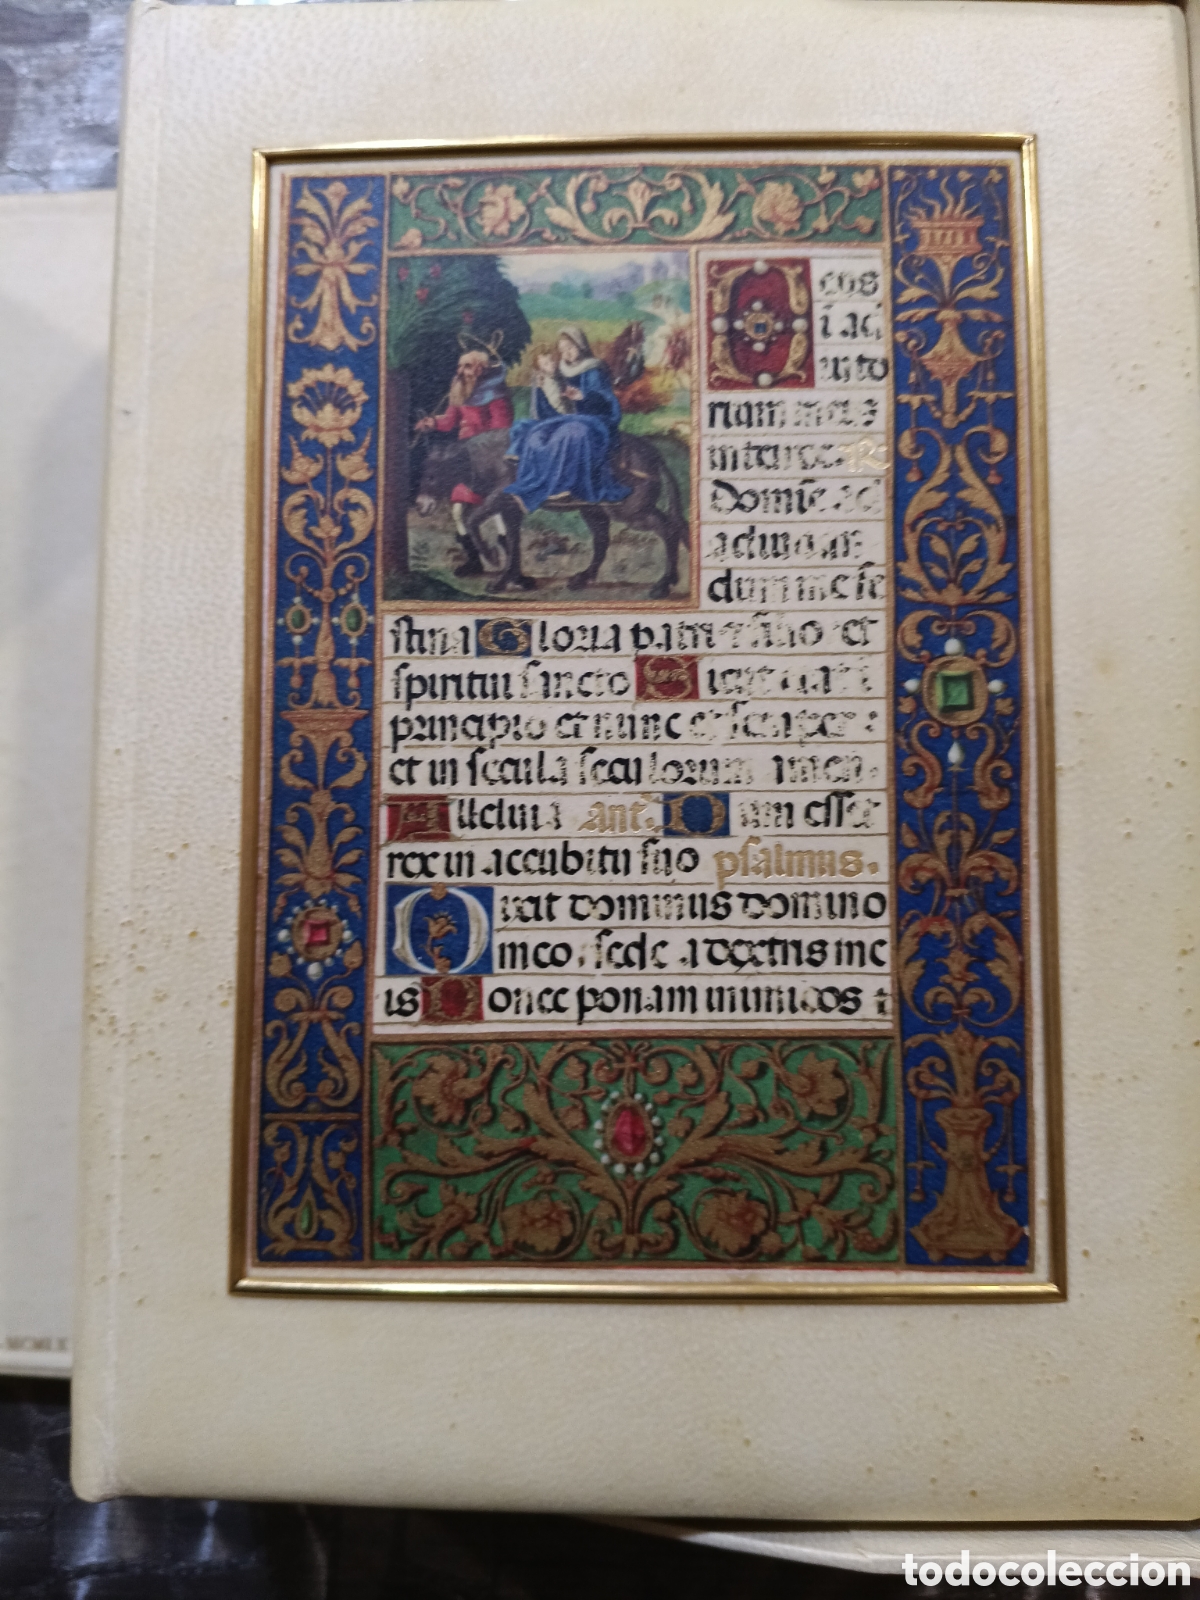 Deus
ī ad
iuto
rium meus
intende. R
Domīe ad
adiuuan
dum me fe
stina Gloria patri et filio et
spiritui sancto Sicut erat ī
principio et nunc et semper :
et in secula seculorum amen.
Alleluia anī. Dum esset
rex in accubitu suo psalmus.
Dixit dominus domino
meo, sede a dextris me
is Donec ponam inimicos t
MCMLX
todocoleccion